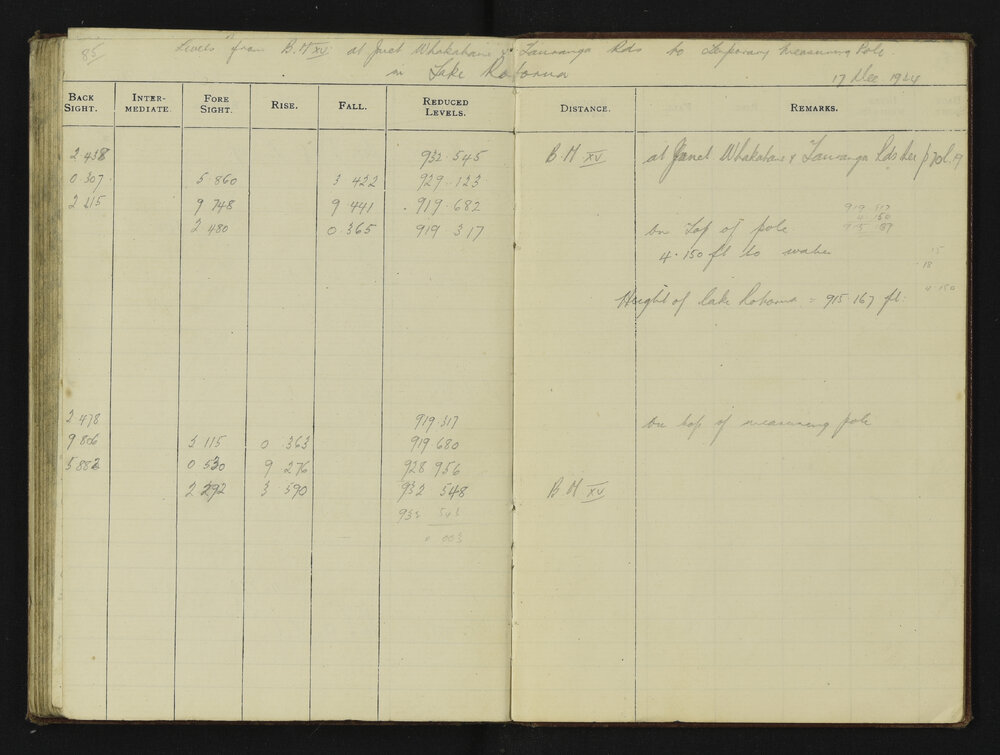 85
Levels from B.M XV at Junct Whakatane & Tauranga Rds to Temporary Measuring Pole
in Lake Rotoma
17 Dec. 1924
BACK SIGHT. INTER-MEDIATE. FORE SIGHT. RISE. FALL. REDUCED LEVELS. DISTANCE. REMARKS.
2 438 932 . 545 B. M XV at Junct Whakatane & Tauranga Rds
0 307 5 860 3 422 929 . 123
2 115 9 748 9 441 919 . 682
2 480 0 . 365 919 317 On Top of pole
919 317
4 150
4 . 150 ft to water
15
18
4 150
Height of Lake Rotoma = 915 . 167 ft.
2 478 919 . 317 On top of measuring pole
9 806 2 115 0 363 919 . 680
5 882 0 530 9 276 928 956
2 292 3 590 932 548 B M XV
0 003